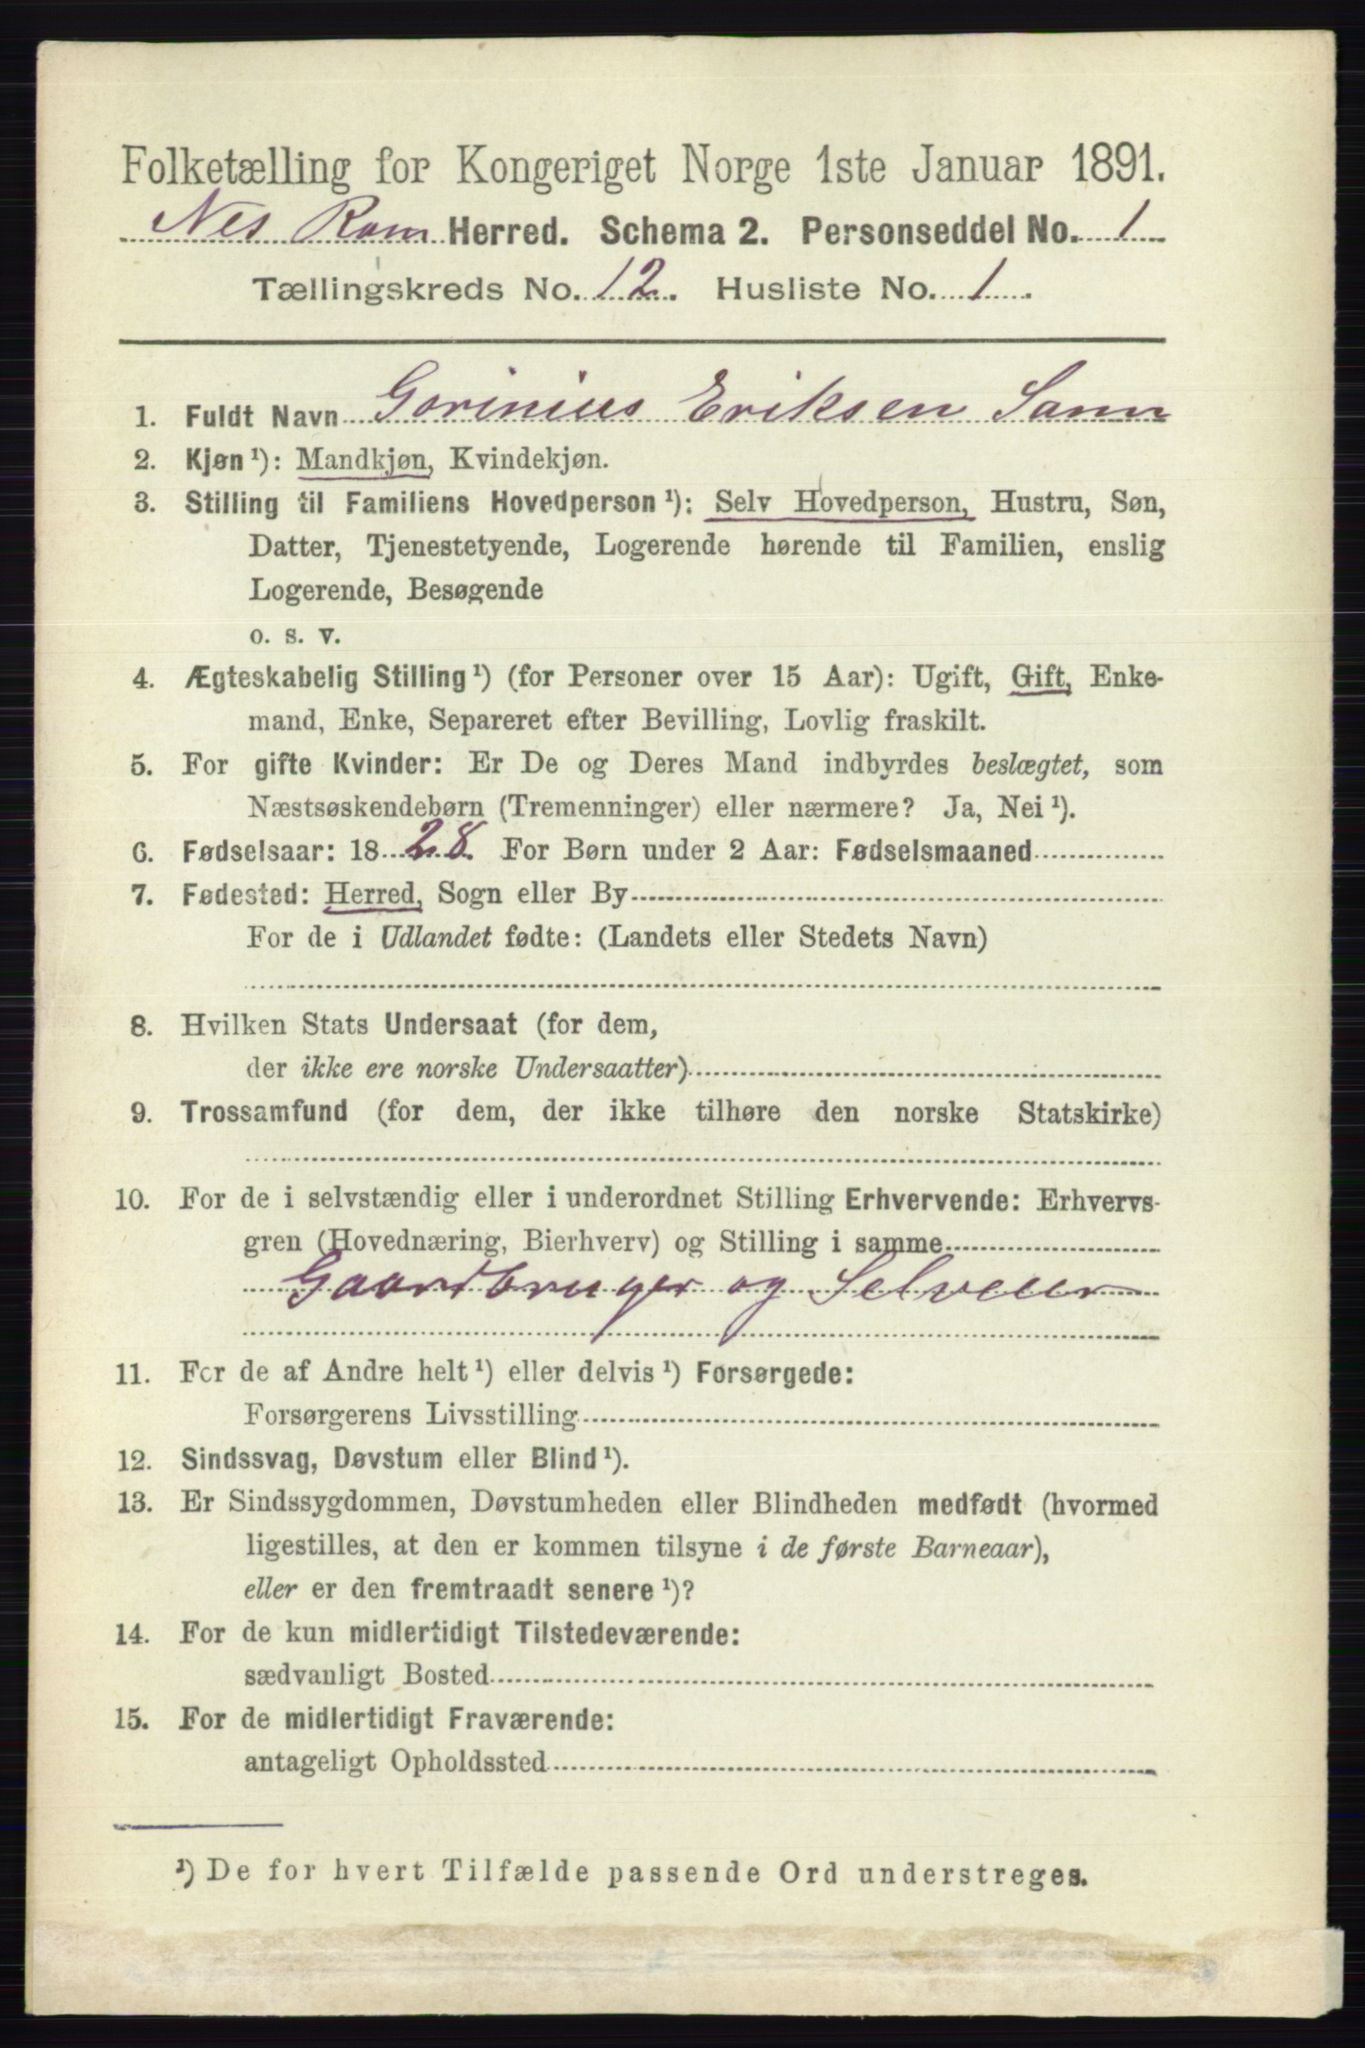 Folketælling for Kongeriget Norge 1ste Januar 1891.
Nes Rom Herred. Schema 2. Personseddel No. 1
Tællingskreds No. 12. Husliste No. 1.
1. Fuldt Navn Gorinius Eriksen Sann
2. Kjøn ¹): Mandkjøn, Kvindekjøn.
3. Stilling til Familiens Hovedperson ¹): Selv Hovedperson, Hustru, Søn,
Datter, Tjenestetyende, Logerende hørende til Familien, enslig
Logerende, Besøgende
o. s. v.
4. Ægteskabelig Stilling ¹) (for Personer over 15 Aar): Ugift, Gift, Enke-
mand, Enke, Separeret efter Bevilling, Lovlig fraskilt.
5. For gifte Kvinder: Er De og Deres Mand indbyrdes beslægtet, som
Næstsøskendebørn (Tremenninger) eller nærmere? Ja, Nei ¹).
6. Fødselsaar: 1828 For Børn under 2 Aar: Fødselsmaaned
7. Fødested: Herred, Sogn eller By
For de i Udlandet fødte: (Landets eller Stedets Navn)
8. Hvilken Stats Undersaat (for dem,
der ikke ere norske Undersaatter)
9. Trossamfund (for dem, der ikke tilhøre den norske Statskirke)
10. For de i selvstændig eller i underordnet Stilling Erhvervende: Erhvervs-
gren (Hovednæring, Bierhverv) og Stilling i samme
Gaardbruger og Selveier
11. For de af Andre helt ¹) eller delvis ¹) Forsørgede:
Forsørgerens Livsstilling
12. Sindssvag, Døvstum eller Blind ¹).
13. Er Sindssygdommen, Døvstumheden eller Blindheden medfødt (hvormed
ligestilles, at den er kommen tilsyne i de første Barneaar),
eller er den fremtraadt senere ¹)?
14. For de kun midlertidigt Tilstedeværende:
sædvanligt Bosted
15. For de midlertidigt Fraværende:
antageligt Opholdssted
¹) De for hvert Tilfælde passende Ord understreges.